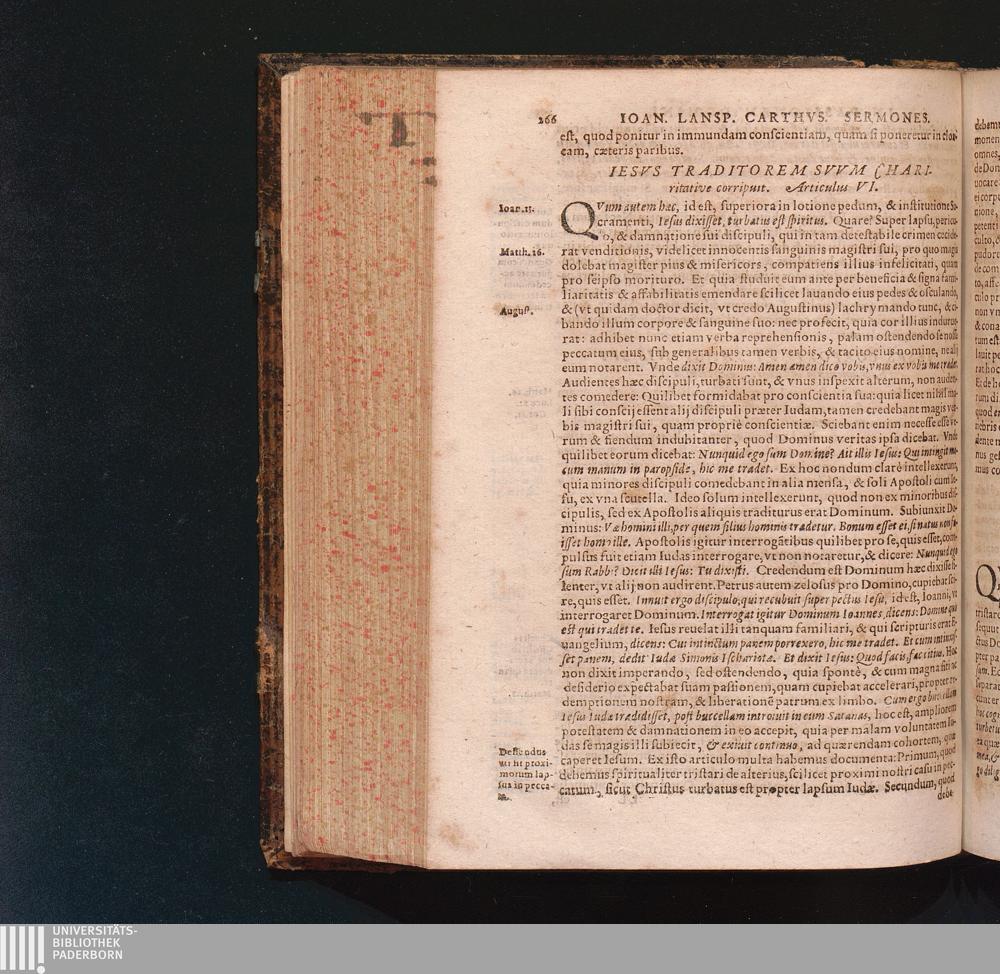 266 IOAN. LANSP. CARTHVS. SERMONES.
est, quod ponitur in immundam conscientiam, quam si poneretur in cloa-
cam, cæteris paribus.
IESVS TRADITOREM SVVM CHARI-
ritative corripuit. Articulus VI.
Ioan. 13.
QVum autem hæc, id est, superiora in lotione pedum, & institutione Sa-
cramenti, Iesus dixisset, turbatus est spiritus. Quare? Super lapsu, pericu-
o, & damnatione sui discipuli, qui in tam detestabile crimen cecide-
Matth. 26.
rat venditionis, videlicet innocentis sanguinis magistri sui, pro quo magis
dolebat magister pius & misericors, compatiens illius infelicitati, quàm
pro seipso morituro. Et quia studuit eum ante per beneficia & signa fami-
liaritatis & affabilitatis emendare scilicet lauando eius pedes & osculando,
August.
& (vt quidam doctor dicit, vt credo Augustinus) lachrymando tunc, & ci-
bando illum corpore & sanguine suo: nec profecit, quia cor illius indurue-
rat: adhibet nunc etiam verba reprehensionis, palam ostendendo se nosse
peccatum eius, sub generalibus tamen verbis, & tacito eius nomine, ne alij
eum notarent. Vnde dixit Dominus: Amen amen dico vobis, vnus ex vobis me tradet.
Audientes hæc discipuli, turbati sunt, & vnus inspexit alterum, non auden-
tes comedere: Quilibet formidabat pro conscientia sua: quia licet nihil ma-
li sibi conscij essent alij discipuli præter Iudam, tamen credebant magis ver-
bis magistri sui, quam propriè conscientiæ. Sciebant enim necesse esse ve-
rum & fiendum indubitanter, quod Dominus veritas ipsa dicebat. Vnde
quilibet eorum dicebat: Nunquid ego sum Domine? Ait illis Iesus: Qui intingit me-
cum manum in paropside, hic me tradet. Ex hoc nondum clarè intellexerunt,
quia minores discipuli comedebant in alia mensa, & soli Apostoli cum Ie-
su, ex vna scutella. Ideo solum intellexerunt, quod non ex minoribus dis-
cipulis, sed ex Apostolis aliquis traditurus erat Dominum. Subiunxit Do-
minus: Væ homini illi, per quem filius hominis tradetur. Bonum esset ei, si natus non fu-
isset homo ille. Apostolis igitur interrogãtibus quilibet pro se, quis esset, com-
pulsus fuit etiam Iudas interrogare, vt non notaretur, & dicere: Nunquid ego
sum Rabbi? Dicit illi Iesus: Tu dixisti. Credendum est Dominum hæc dixisse si-
lenter, vt alij non audirent. Petrus autem zelosus pro Domino, cupiebat sci-
re, quis esset. Innuit ergo discipulo, qui recubuit super pectus Iesu, id est, Ioanni, vt
interrogaret Dominum. Interrogat igitur Dominum Ioannes, dicens: Domine quis
est qui tradet te. Iesus reuelat illi tanquam familiari, & qui scripturis erat E-
uangelium, dicens: Cui intinctum panem porrexero, hic me tradet. Et cum intinxis-
set panem, dedit Iudæ Simonis Ischariotæ. Et dixit Iesus: Quod facis, fac citius. Hoc
non dixit imperando, sed ostendendo, quia spontè, & cum magna siti ac
desiderio expectabat suam passionem, quam cupiebat accelerari, propter re-
demptionem nostram, & liberationẽ patrum ex limbo. Cum ergo buccellam
Iesus Iudæ tradidisset, post buccellam introiuit in eum Satanas, hoc est, ampliorem
potestatem & damnationem in eo accepit, quia per malam voluntatem Iu-
das se magis illi subiecit, & exiuit continuo, ad quærendam cohortem, quæ
caperet Iesum. Ex isto articulo multa habemus documenta: Primum, quod
debemus spiritualiter tristari de alterius, scilicet proximi nostri casu in pec-
catum, sicut Christus turbatus est propter lapsum Iudæ. Secundum, quod
debe-
Deflendus
proxi-
morum lap-
sus in pecca-
UNIVERSITÄTS-
BIBLIOTHEK
PADERBORN